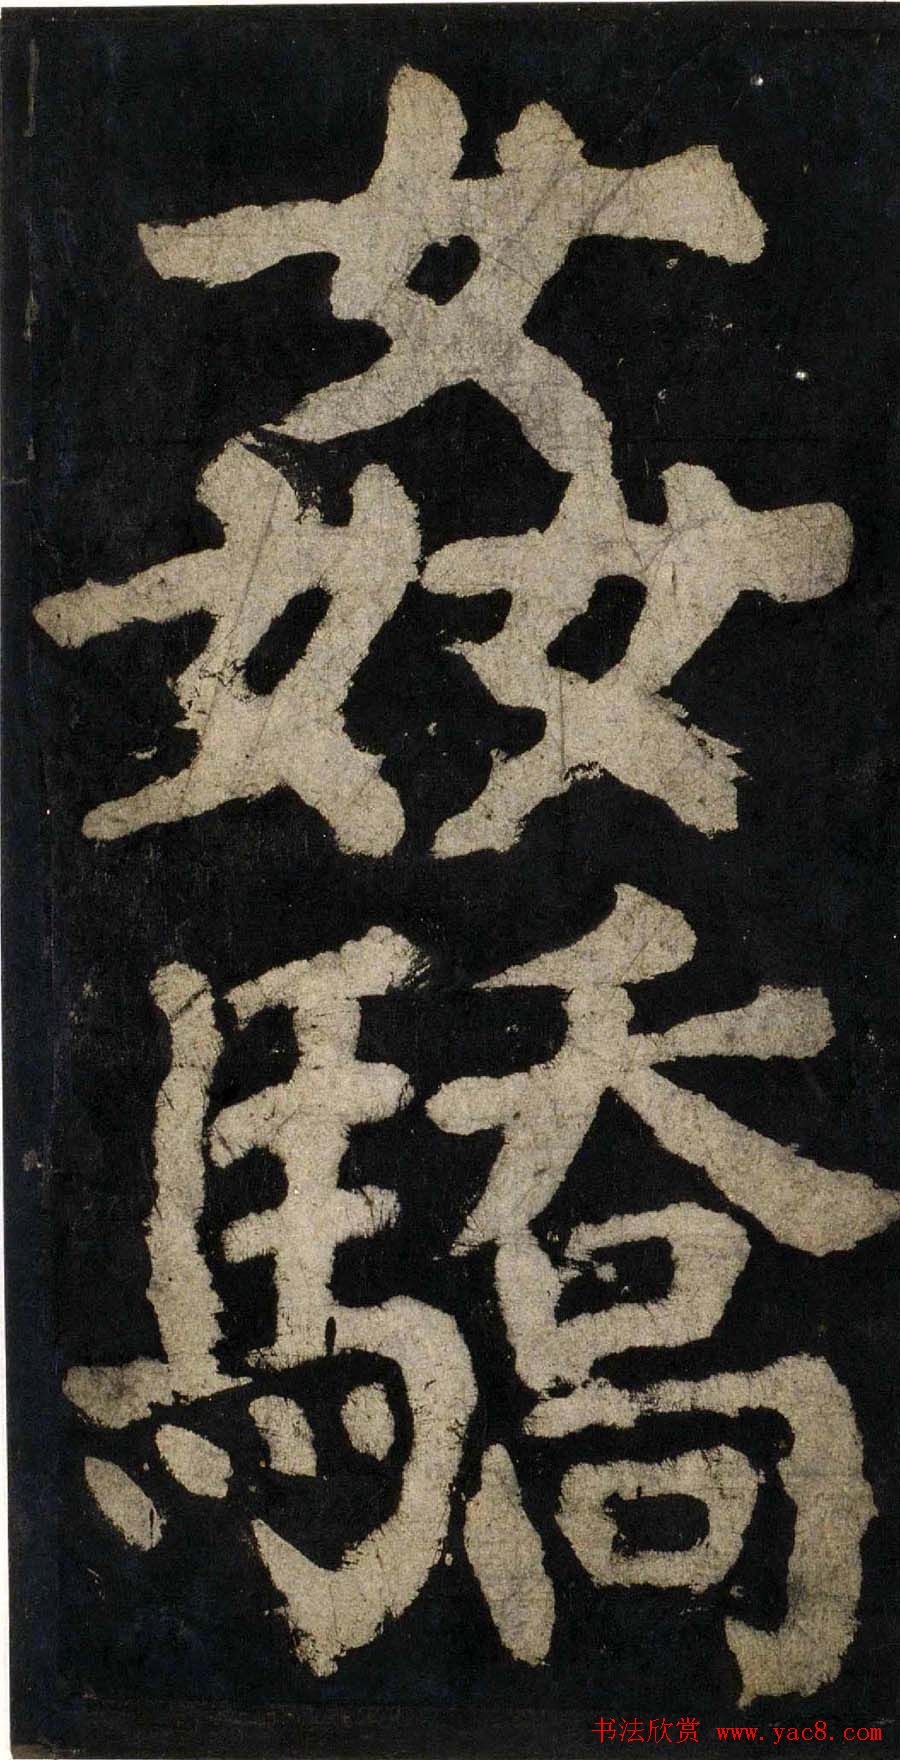 姦
驕
书法欣赏 www.yac8.com